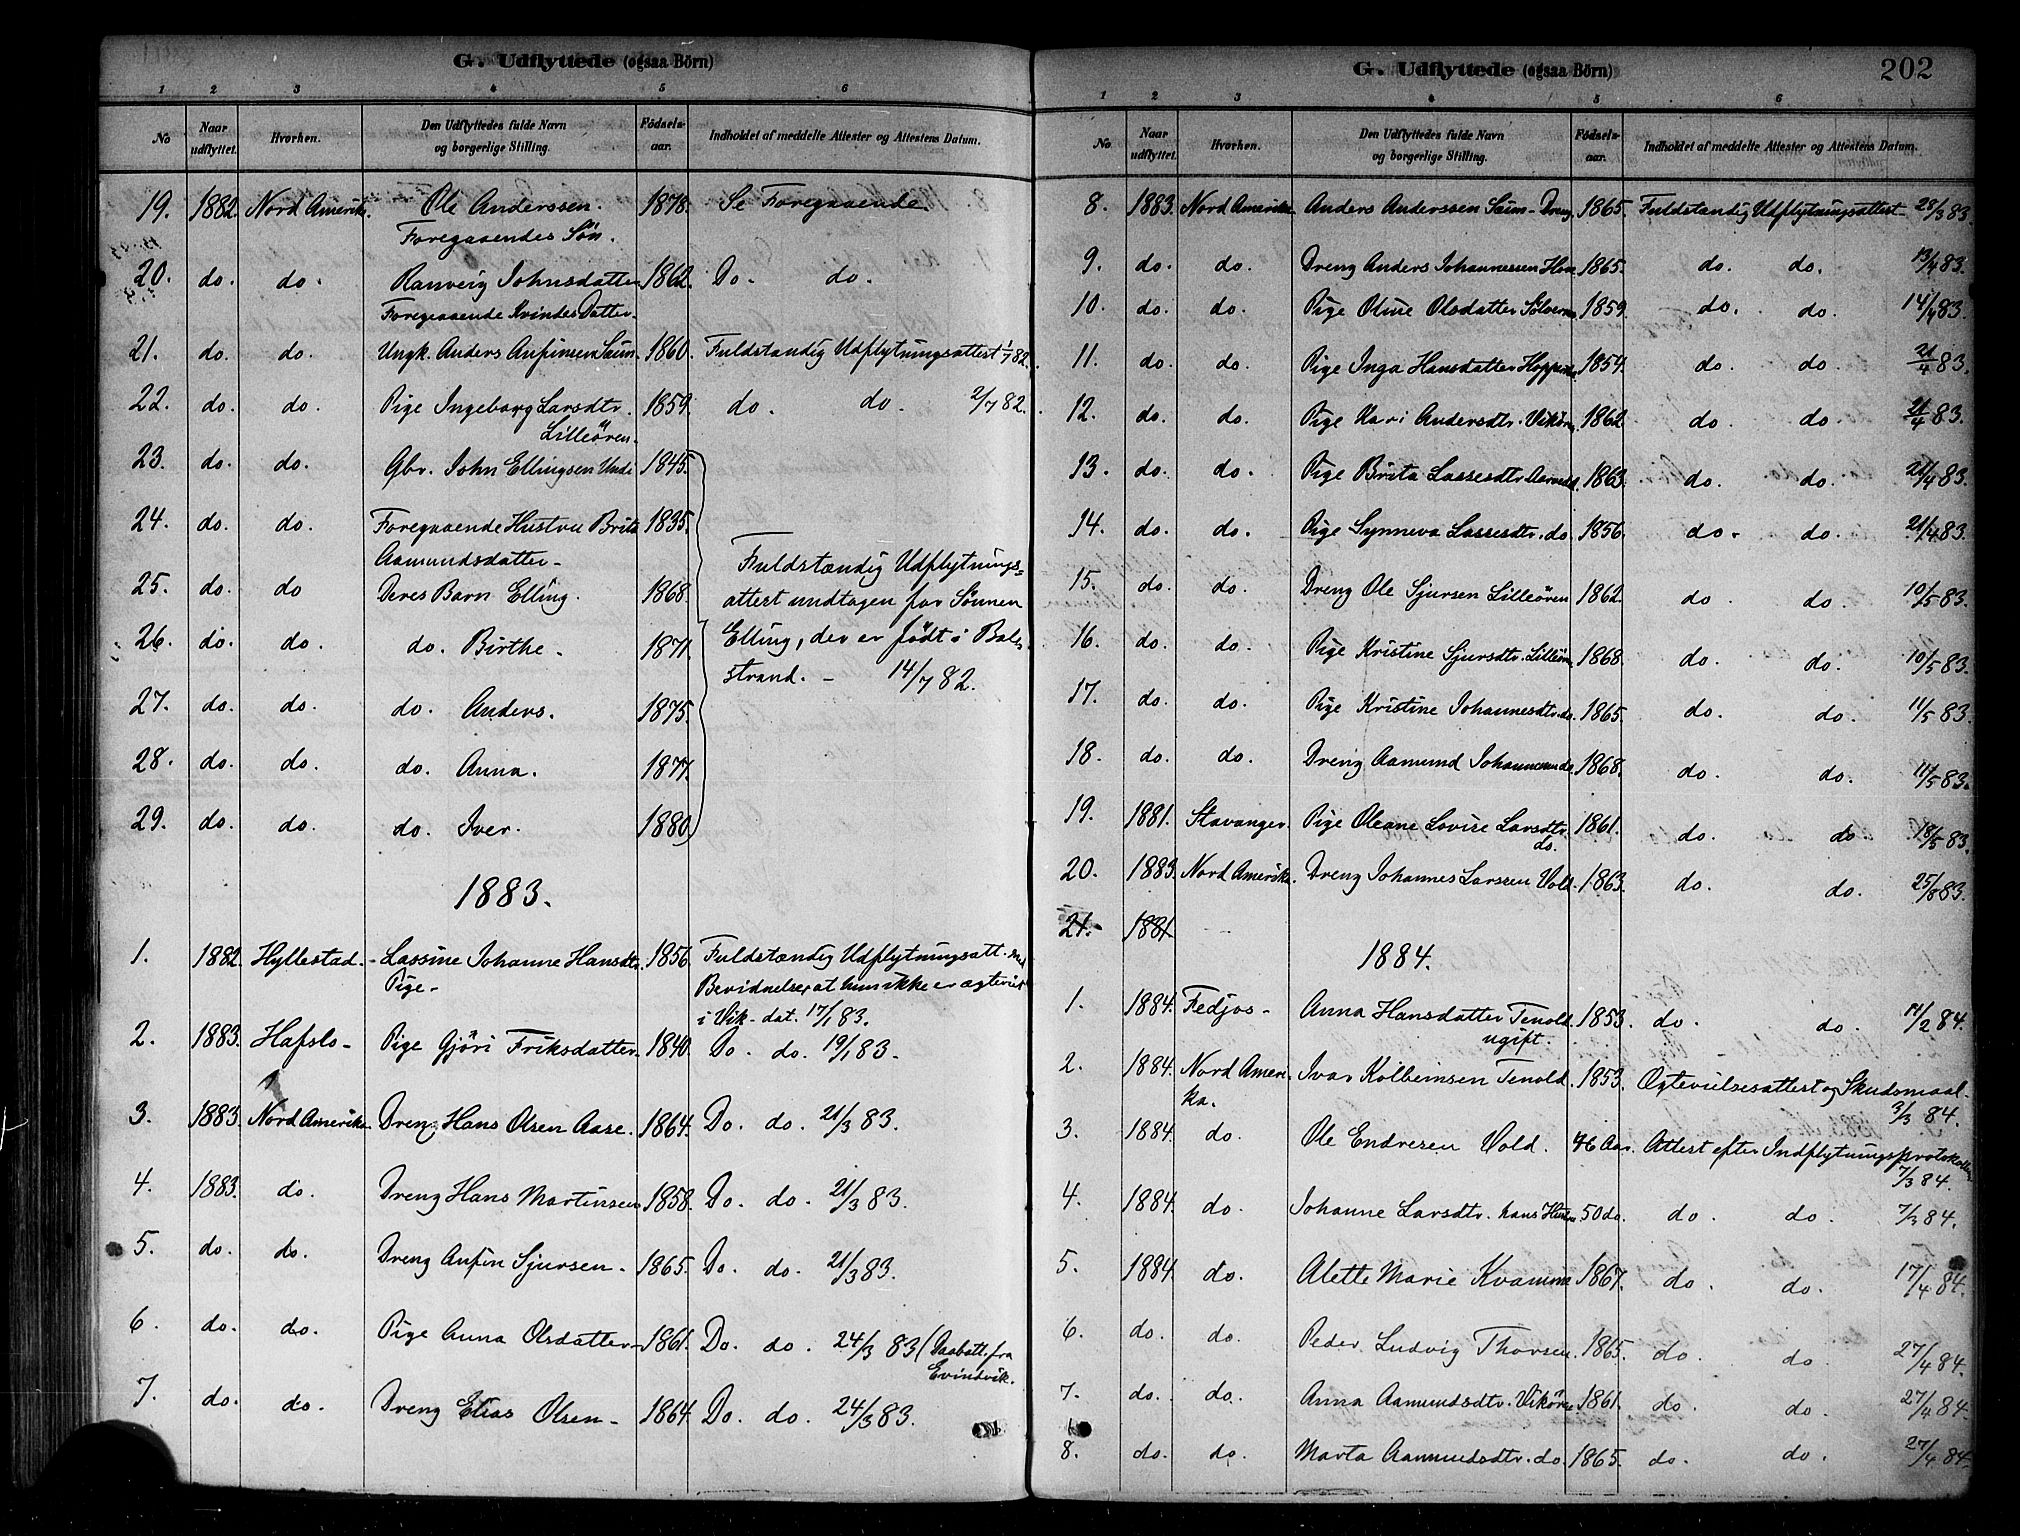 G. Udflyttede (ogsaa Börn)
1 2 3 4 5 6
No Naar udflyttet. Hvorhen. Den Udflyttedes fulde Navn og borgerlige Stilling. Födsels-aar. Indholdet af meddelte Attester og Attestens Datum.
19. 1882. Nord Amerika. Ole Anderssen. 1878. Se Foregaaende
Foregaaendes Søn.
20. do. do. Ranveig Johnsdatter 1862. Do. do.
Foregaaende Kvindes Datter.
21. do. do. Ungk. Anders Anfinsen 1860. Fuldstændig Udflytningsattest 1/7 82.
22. do. do. Pige Ingeborg Larsdtr. 1859. do. do. 2/7 82.
Lilleören.
23. do. do. Gbr. John Ellingsen 1845.
24. do. do. Foregaaende Hustru Brita 1835.
Aamundsdatter.
25. do. do Deres Barn Elling. 1868.
26. do. do. do. Birthe. 1871.
27. do. do. do. Anders. 1875.
28. do. do. do. Anna. 1877.
29. do. do. do. Iver. 1880
Fuldstændig Udflytnings=
attest undtagen for Sönnen
Elling, der er født i Bale-
strand. - 14/7 82.
1883.
1. 1882. Hyllestad. Lassine Johanne Hansdtr. 1856. Fuldstændig Udflytningsatt. med
Pige. Bevidnelse, at hun ikke er ægteviet
i Vik. dat. 17/1 83.
2. 1883. Hafslo. Pige Gjöri Eriksdatter. 1840. Do. do. 19/1 83.
3. 1883. Nord Amerika. Dreng Hans Olsen Aase. 1864. Do. do. 21/3 83.
4. 1883. do. Dreng Hans Martinsen 1858. Do. do. 21/3 83.
5. do. do. Dreng Anfin Sjursen. 1865. Do. do. 21/3 83.
6. do. do. Pige Anna Olsdatter 1861. Do. do. 24/3 83 (Daabatt. fra
Evindvik.
7. do. do. Dreng Elias Olsen. 1864. Do. do. 24/3 83.
202
G. Udflyttede (ogsaa Börn)
1 2 3 4 5 6
No Naar udflyttet. Hvorhen. Den Udflyttedes fulde Navn og borgerlige Stilling. Födsels-aar. Indholdet af meddelte Attester og Attestens Datum.
8. 1883. Nord Amerika Anders Anderssen Dreng 1865. Fuldstændig Udflytningsattest 28/3 83.
9. do. do. Dreng Anders Johannessen 1865. do. do. 13/4 83.
10. do. do. Pige Oline Olsdatter 1859. do. do. 14/4 83.
11. do. do. Pige Inga Hansdatter 1854. do. do. 21/4 83.
12. do. do. Pige Kari Andersdtr. Vikören 1862. do. do. 21/4 83.
13. do. do. Pige Brita Lassesdtr. 1863. do. do. 21/4 83.
14. do. do. Pige Synneva Lassesdtr. do. 1856. do. do. 21/4 83.
15. do. do. Dreng Ole Sjursen Lilleören 1862. do. do. 10/5 83.
16. do. do. Pige Kristine Sjursdtr. Lilleören 1868. do. do. 10/5 83.
17. do. do. Pige Kristine Johannesdtr. do. 1865. do. do. 11/5 83.
18. do. do. Dreng Aamund Johannessen do. 1868. do. do. 11/5 83.
19. 1881. Stavanger. Pige Oleane Lovise Larsdtr. 1861. do. do. 18/5 83.
do.
20. 1883. Nord Amerika. Dreng Johannes Larssen Vold. 1863. do. do. 25/8 83.
21. 1881
1884.
1. 1884. Fedjos. Anna Hansdatter Tenold. 1853. do. do. 14/2 84.
ugift.
2. 1884. Nord Ameri- Ivar Kolbeinsen Tenold. 1853. Ægtevielsesattest og Skudsmaal.
ka. 3/3 84.
3. 1884. do. Ole Endresen Vold. 46 Aar. Attest efter Indflytningsprotokollen
7/3 84.
4. 1884. do. Johanne Larsdtr. hans Hustru 50 do. do. do. 7/3 84.
5. 1884. do. Alette Marie Kvamme 1867. do. do. 17/4 84.
6. do. do. Peder Ludvig Thorsen. 1865. do. do. 27/4 84.
7. do. do. Anna Aamundsdtr. Vikören 1861. do. do. 27/4 84.
8. do. do. Marta Aamundsdtr. do. 1865. do. do. 27/4 84.